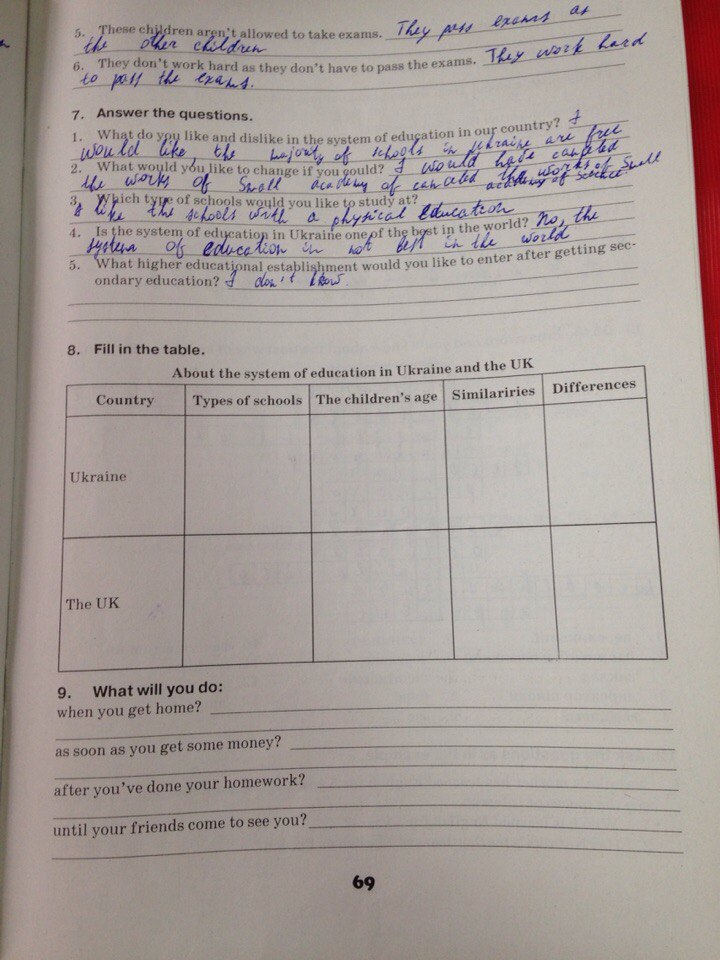 5. These children aren't allowed to take exams. They pass exams as
the other children
6. They don't work hard as they don't have to pass the exams. They work hard
to pass the exams.
7. Answer the questions.
1. What do you like and dislike in the system of education in our country? I
would like, the majority of schools in Ukraine are free
2. What would you like to change if you gould? I would have canceled
the works of Small academy of canceled the works of Small
academy of science.
3. Which type of schools would you like to study at?
I like the schools with a physical education
4. Is the system of education in Ukraine one of the best in the world? No, the
system of education in not best in the world
5. What higher educational establishment would you like to enter after getting sec-
ondary education? I don't know.
8. Fill in the table.
About the system of education in Ukraine and the UK
Country Types of schools The children's age Similariries Differences
Ukraine
The UK
9. What will you do:
when you get home?
as soon as you get some money?
after you've done your homework?
until your friends come to see you?
69